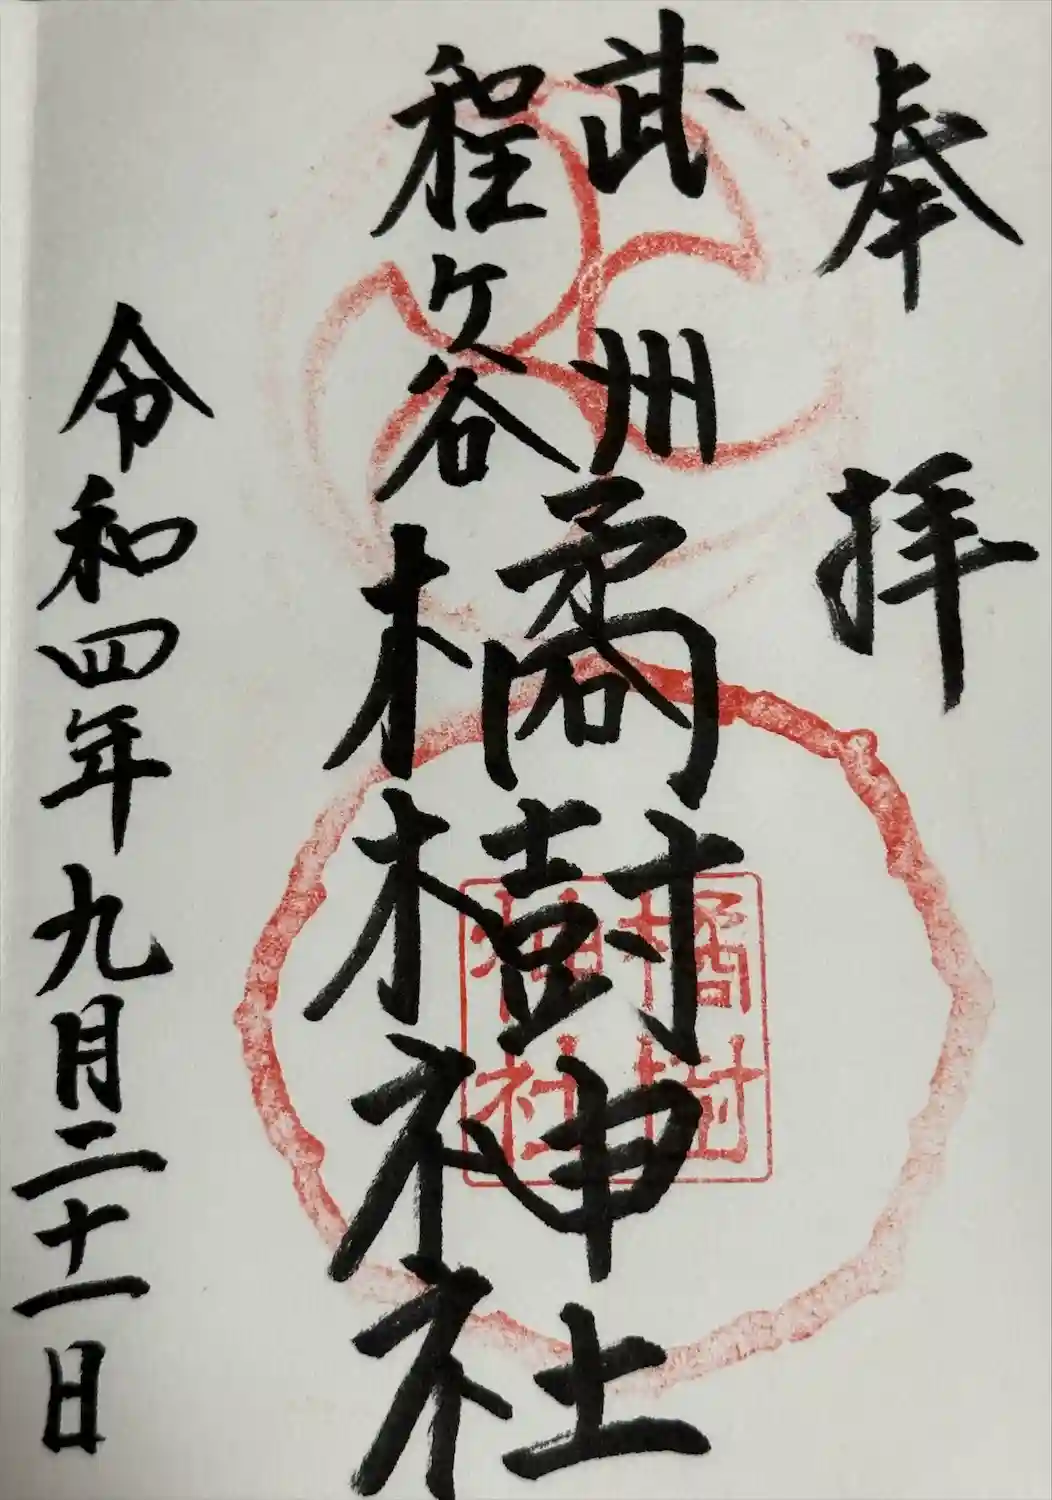 奉拝
武州
程ヶ谷
橘樹神社
橘樹
神社
令和四年九月二十一日